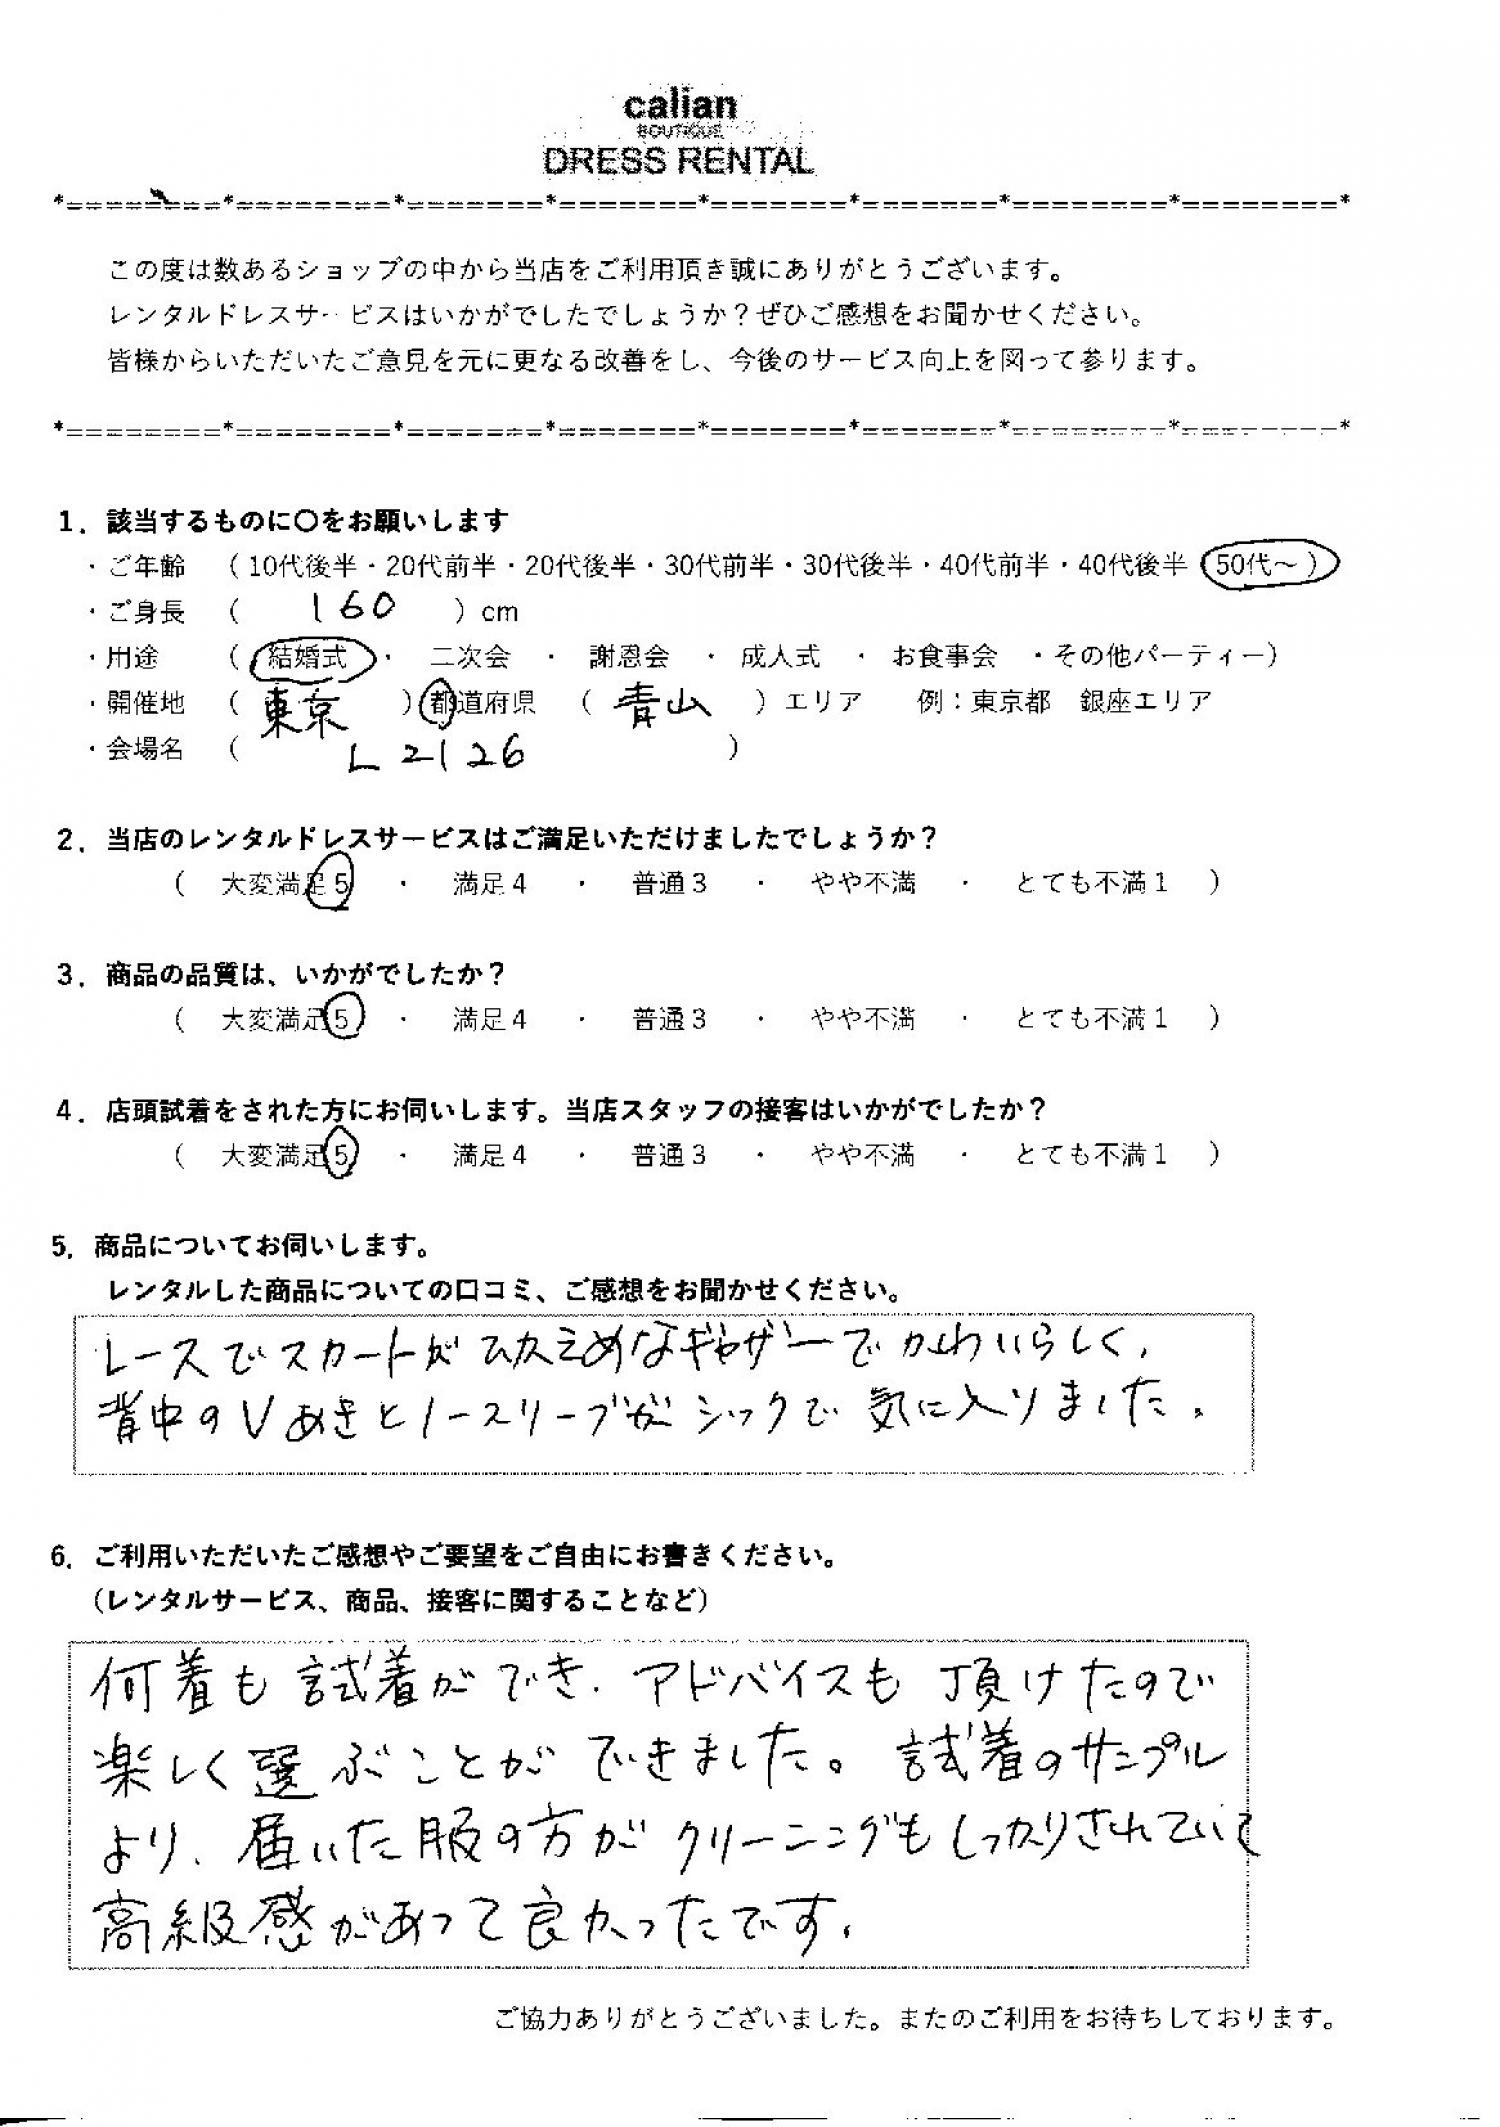 calian
BOUTIQUE
DRESS RENTAL
*========*========*=======*=======*=======*=======*========*========*
この度は数あるショップの中から当店をご利用頂き誠にありがとうございます。
レンタルドレスサービスはいかがでしたでしょうか？ぜひご感想をお聞かせください。
皆様からいただいたご意見を元に更なる改善をし、今後のサービス向上を図って参ります。
*========*========*=======*=======*=======*=======*========*========*
1．該当するものに〇をお願いします
・ご年齢 （10代後半・20代前半・20代後半・30代前半・30代後半・40代前半・40代後半 50代～）
・ご身長 （ 160 ）cm
・用途 （ 結婚式 ・ 二次会 ・ 謝恩会 ・ 成人式 ・ お食事会 ・その他パーティー）
・開催地 （ 東京 ）都道府県 （ 青山 ）エリア 例：東京都 銀座エリア
・会場名 （ L2126 ）
2．当店のレンタルドレスサービスはご満足いただけましたでしょうか？
（ 大変満足5 ・ 満足4 ・ 普通3 ・ やや不満 ・ とても不満1 ）
3．商品の品質は、いかがでしたか？
（ 大変満足5 ・ 満足4 ・ 普通3 ・ やや不満 ・ とても不満1 ）
4．店頭試着をされた方にお伺いします。当店スタッフの接客はいかがでしたか？
（ 大変満足5 ・ 満足4 ・ 普通3 ・ やや不満 ・ とても不満1 ）
5．商品についてお伺いします。
レンタルした商品についての口コミ、ご感想をお聞かせください。
レースでスカートがひかえめなギャザーでかわいらしく、
背中のVあきとノースリーブがシックで気に入りました。
6．ご利用いただいたご感想やご要望をご自由にお書きください。
（レンタルサービス、商品、接客に関することなど）
何着も試着ができ、アドバイスも頂けたので
楽しく選ぶことができました。試着のサンプル
より、届いた服の方がクリーニングもしっかりされていて
高級感があって良かったです。
ご協力ありがとうございました。またのご利用をお待ちしております。